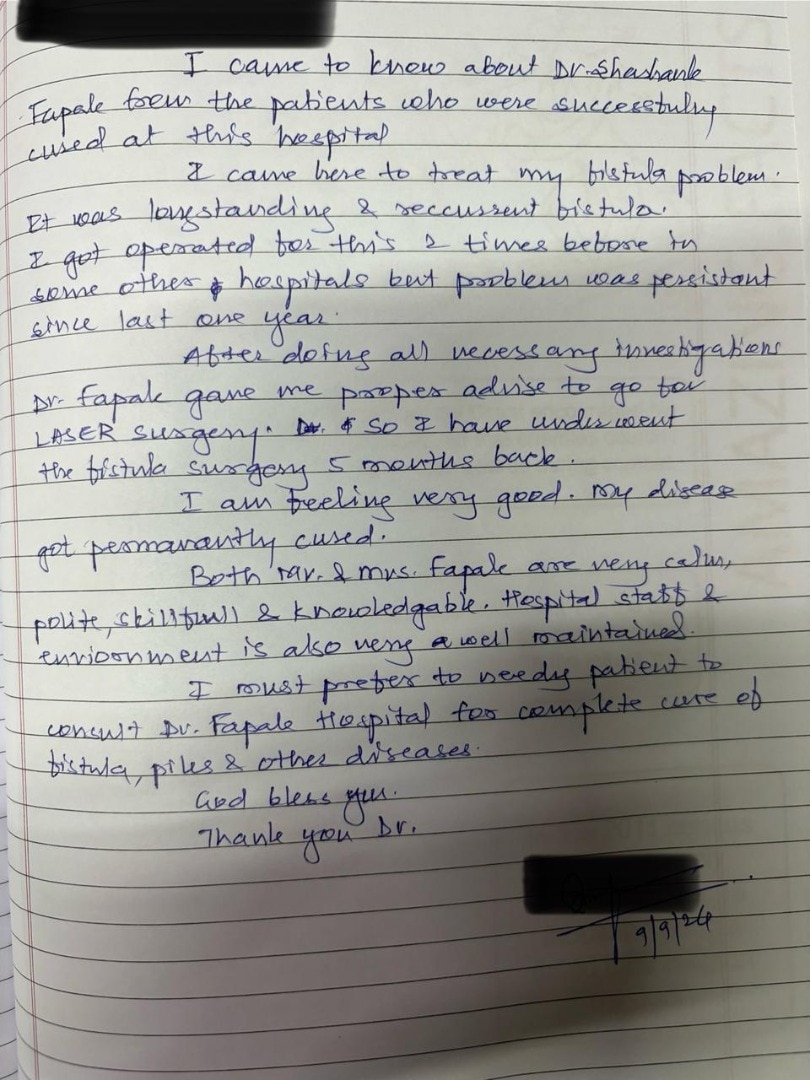 I came to know about Dr. Shashank
Fapale from the patients who were successfuly
cured at this hospital
I came here to treat my fistula problem.
It was longstanding & reccurrent fistula.
I got operated for this 2 times before in
some other hospitals but problem was persistant
since last one year.
After doing all necessary investigations
Dr. Fapale gave me proper advise to go for
LASER surgery. So I have underwent
the fistula surgery 5 months back.
I am feeling very good. My disease
got permanantly cured.
Both Mr. & Mrs. Fapale are very calm,
polite, skillfull & knowledgable. Hospital staff &
envioornment is also very well maintained.
I must prefer to needy patient to
consult Dr. Fapale Hospital for complete cure of
fistula, piles & other diseases.
God bless you.
Thank you Dr.
9/9/24